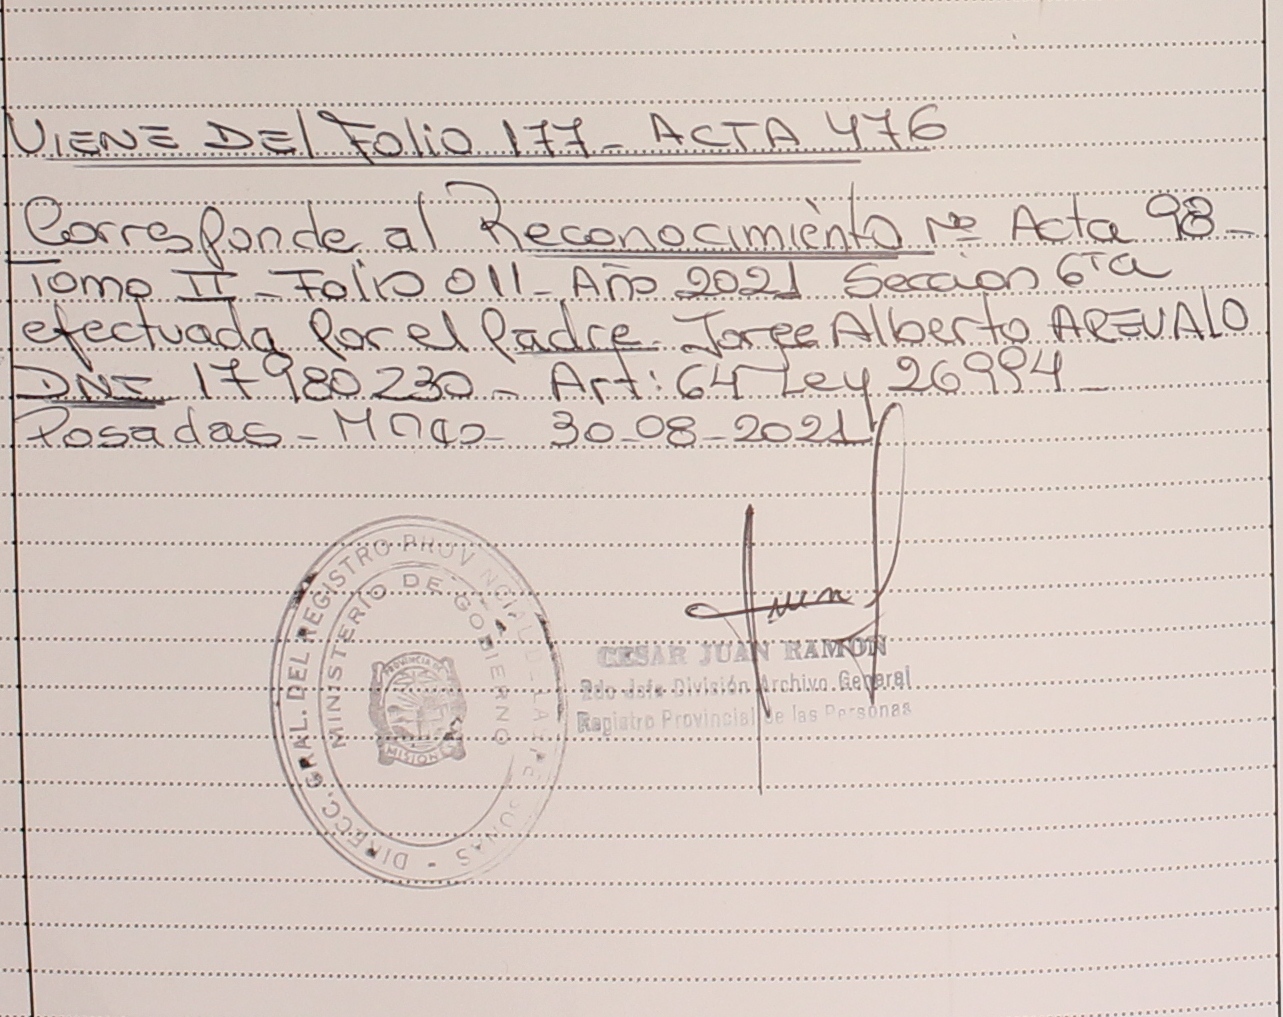 VIENE DEL Folio 177 - ACTA 476
Corresponde al Reconocimiento Nº Acta 98 -
Tomo II - Folio 011 - Año 2021 Seccion 6ta
efectuada por el padre Jorge Alberto AREVALO
DNI 17980230 - Art: 64 Ley 26994 -
Posadas - Mnes - 30-08-2021
DIRECC. GRAL. DEL REGISTRO PROVINCIAL DE LAS PERSONAS -
MINISTERIO DE GOBIERNO
PROVINCIA DE
MISIONES
CESAR JUAN RAMON
2do Jefe División Archivo General
Registro Provincial de las Personas